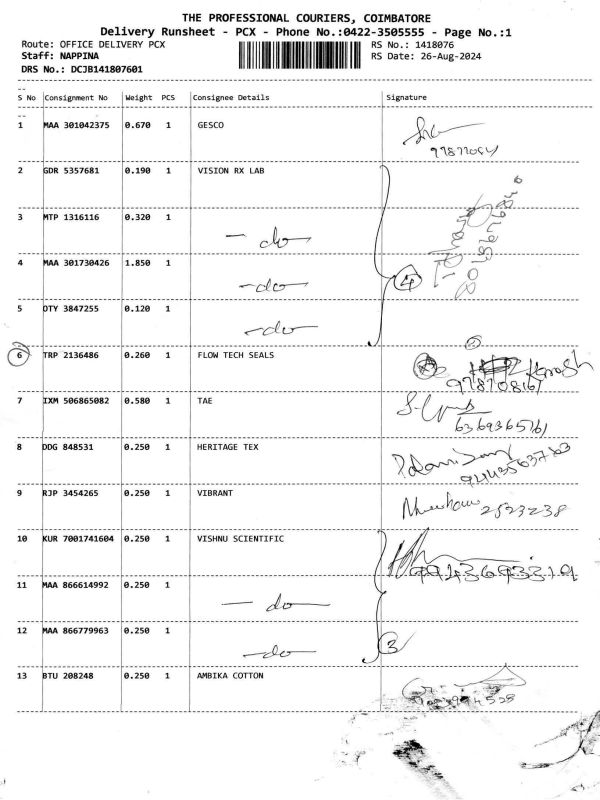 THE PROFESSIONAL COURIERS, COIMBATORE
Delivery Runsheet - PCX - Phone No.:0422-3505555 - Page No.:1
Route: OFFICE DELIVERY PCX RS No.: 1418076
Staff: NAPPINA RS Date: 26-Aug-2024
DRS No.: DCJB141807601
S No Consignment No Weight PCS Consignee Details Signature
1 MAA 301042375 0.670 1 GESCO
2 GDR 5357681 0.190 1 VISION RX LAB
3 MTP 1316116 0.320 1
- do
4 MAA 301730426 1.850 1
- do 4
5 OTY 3847255 0.120 1
- do
6 TRP 2136486 0.260 1 FLOW TECH SEALS
7 IXM 506865082 0.580 1 TAE
6369365761
8 DDG 848531 0.250 1 HERITAGE TEX
9 RJP 3454265 0.250 1 VIBRANT
2523238
10 KUR 7001741604 0.250 1 VISHNU SCIENTIFIC
11 MAA 866614992 0.250 1
- do
12 MAA 866779963 0.250 1
- do 3
13 BTU 208248 0.250 1 AMBIKA COTTON